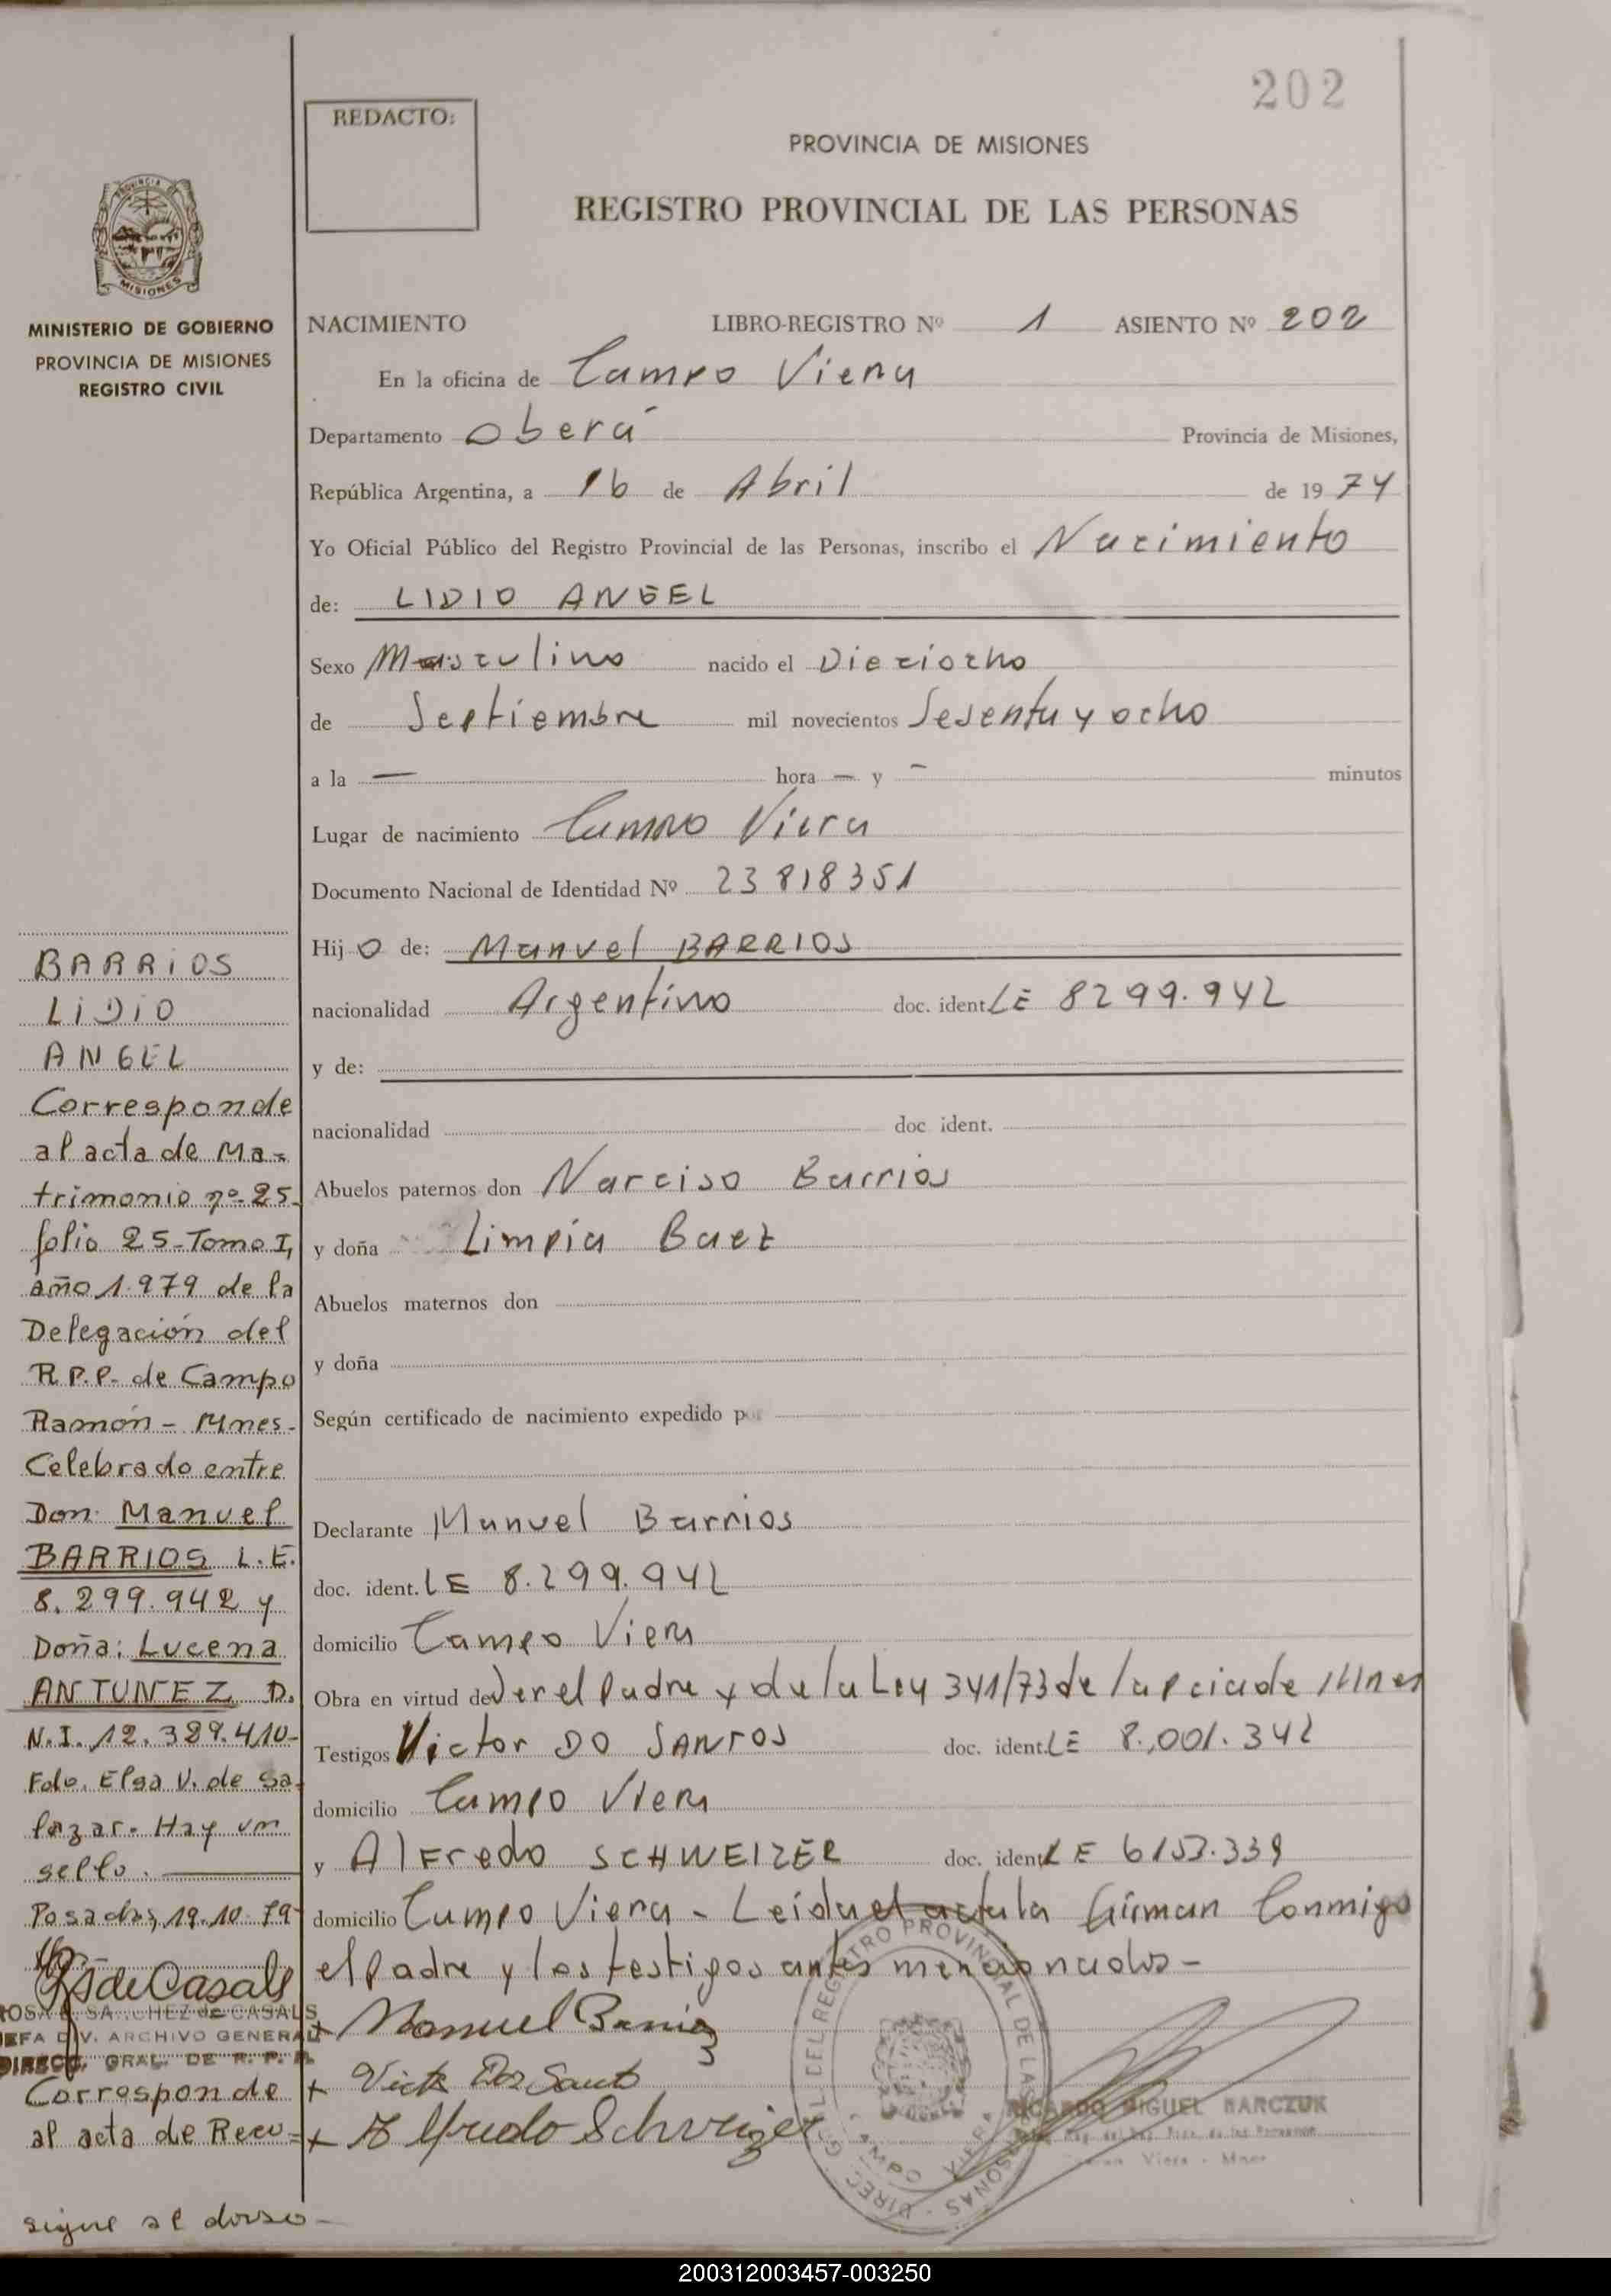 202
REDACTO:
PROVINCIA DE MISIONES
REGISTRO PROVINCIAL DE LAS PERSONAS
PROVINCIA DE
MISIONES
MINISTERIO DE GOBIERNO
PROVINCIA DE MISIONES
REGISTRO CIVIL
NACIMIENTO LIBRO-REGISTRO Nº 1 ASIENTO Nº 202
En la oficina de Campo Viera
Departamento Oberá Provincia de Misiones,
República Argentina, a 16 de Abril de 1974
Yo Oficial Público del Registro Provincial de las Personas, inscribo el Nacimiento
de: LIDIO ANGEL
Sexo Masculino nacido el Dieciocho
de Septiembre mil novecientos Sesenta y ocho
a la — hora — y - minutos
Lugar de nacimiento Campo Viera
Documento Nacional de Identidad Nº 23 818351
Hijo de: Manuel BARRIOS
nacionalidad Argentino doc. ident. LE 8299.942
y de:
nacionalidad doc ident.
Abuelos paternos don Narciso Barrios
y doña Limpia Baez
Abuelos maternos don
y doña
Según certificado de nacimiento expedido por
Declarante Manuel Barrios
doc. ident. LE 8.299.942
domicilio Campo Viera
Obra en virtud de Ser el Padre y de la Ley 341/73 de la Pcia de Mnes
Testigos Victor DO SANTOS doc. ident. LE 8.,001.342
domicilio Campo Viera
y Alfredo SCHWEIZER doc. ident LE 6153.339
domicilio Campo Viera - Leida el acta la firman Conmigo
el Padre y los testigos antes mencionados -
+ Manuel Barrios
+ Victor Dos Santos
+ Alfredo Schweizer
DIREC. GRAL. DEL REGISTRO PROVINCIAL DE LAS PERSONAS
CAMPO VIERA
RICARDO MIGUEL MARCZUK
Viera - Mnes
BARRiOS
LiDiO
ANGEL
Corresponde
al acta de Ma-
trimonio nº 25.
folio 25-Tomo I,
año 1.979 de la
Delegación del
R.P.P. de Campo
Ramón - Mnes-
Celebrado entre
Don: Manuel
BARRIOS L.E.
8.299.942 y
Doña: Lucena
ANTUNEZ D.
N.I. 12.389.410-
Fdo. Elsa V. de Sa-
lazar. Hay un
sello.
Posadas, 19.10.79
RSdeCasals
ROSA SANCHEZ de CASALS
JEFA DIV. ARCHIVO GENERAL
DIRECC. GRAL. DE R. P. P.
Corresponde
al acta de Reco-
sigue al dorso-
200312003457-003250